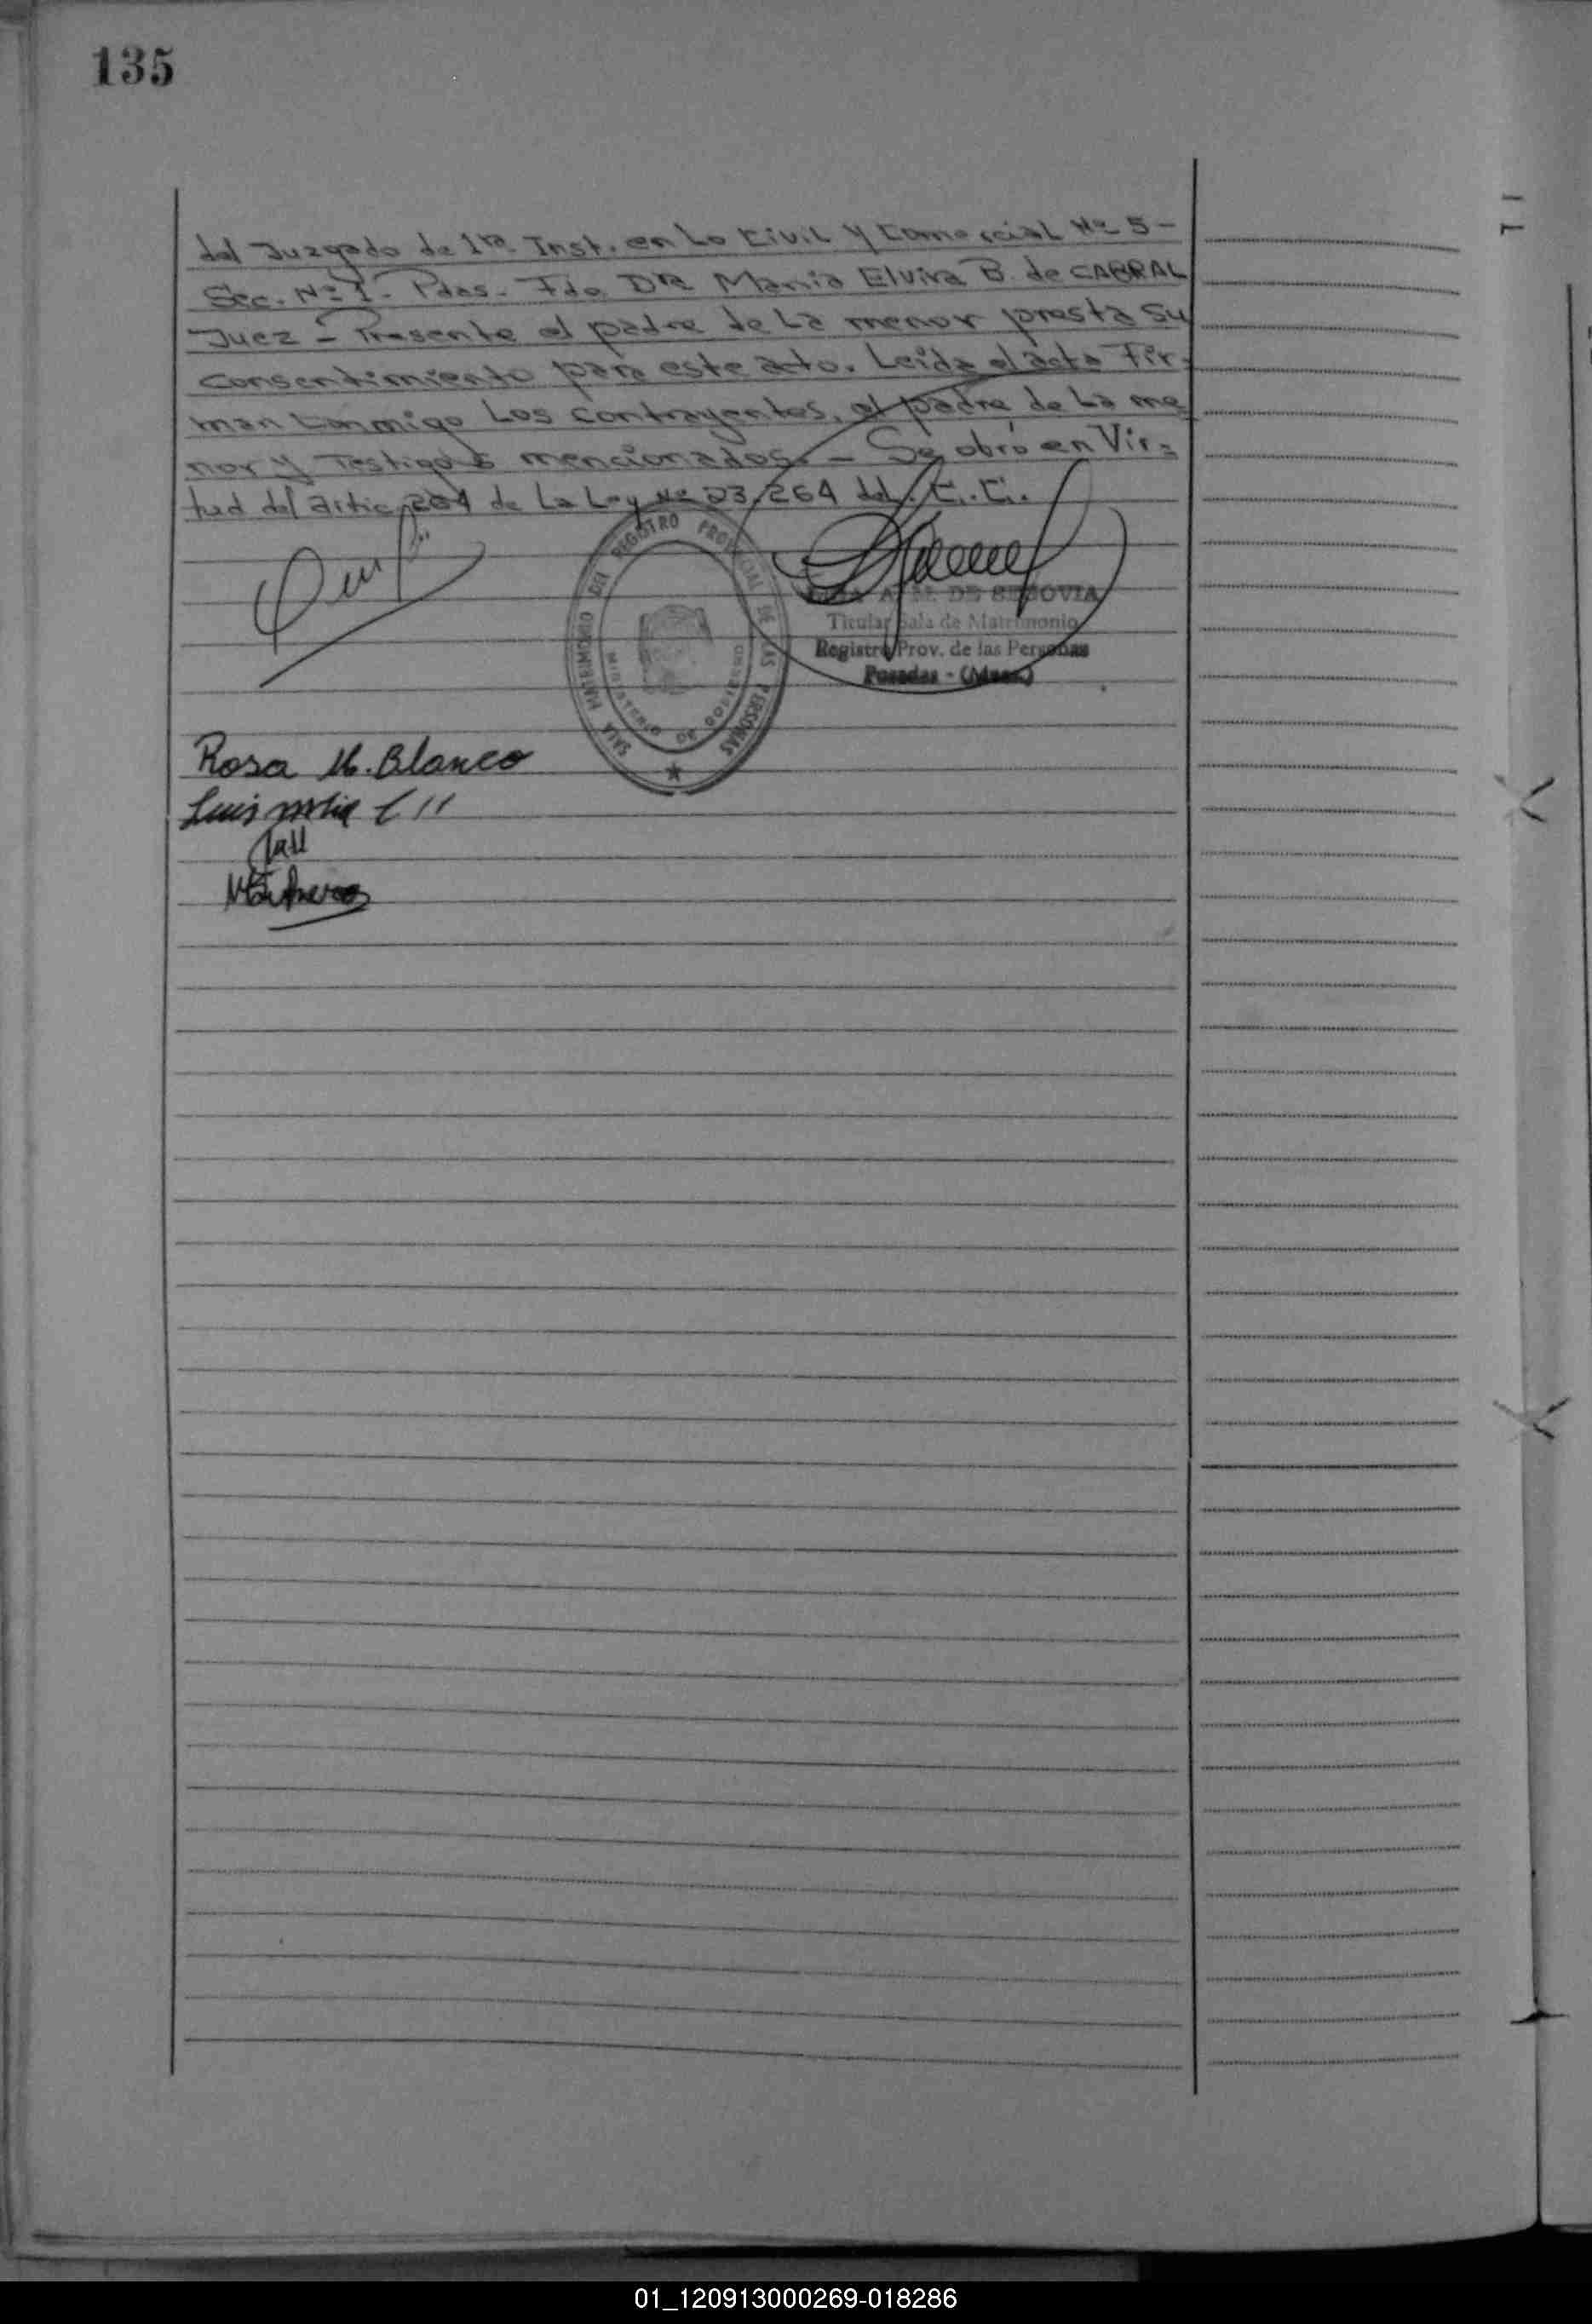 135
del Juzgado de 1ra. Inst. en Lo Civil y Comercial Nº 5 -
Sec. Nº 1 - Pdas. - Fdo DRA Maria Elvira B. de CABRAL
Juez - Presente el padre de La menor presta su
consentimiento para este acto. Leida el acta Fir-
man conmigo Los contrayentes, el padre de La me
nor y Testigos mencionados. - Se obró en Vir=
tud del artic. 264 de La Ley Nº 23.264 del. C.C.
SALA MATRIMONIO DEL REGISTRO PROVINCIAL DE LAS PERSONAS
MINISTERIO DE GOBIERNO
DE SEGOVIA
Titular Sala de Matrimonio
Registro Prov. de las Personas
Posadas - (Mnes.)
Rosa M. Blanco
Luis
01_120913000269-018286